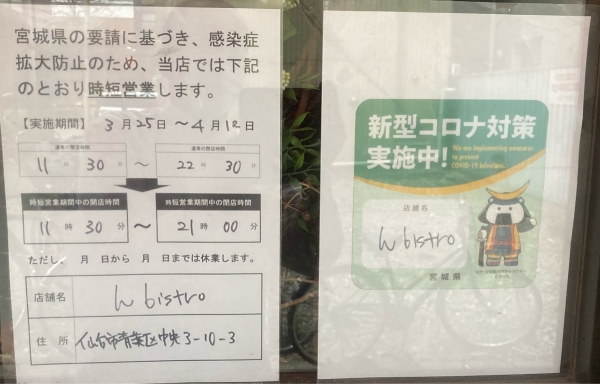 宮城県の要請に基づき、感染症
拡大防止のため、当店では下記
のとおり時短営業します。
【実施期間】 3月25日～4月12日
通常の開店時間 通常の閉店時間
11時30分～22時30分
時短営業期間中の開店時間 時短営業期間中の閉店時間
11時30分～21時00分
ただし、 月 日から 月 日までは休業します。
店舗名 h bistro
住 所 仙台市青葉区中央3-10-3
新型コロナ対策
実施中!
We are implementing measures
to prevent
COVID-19 infections.
店舗名
h bistro
宮城県